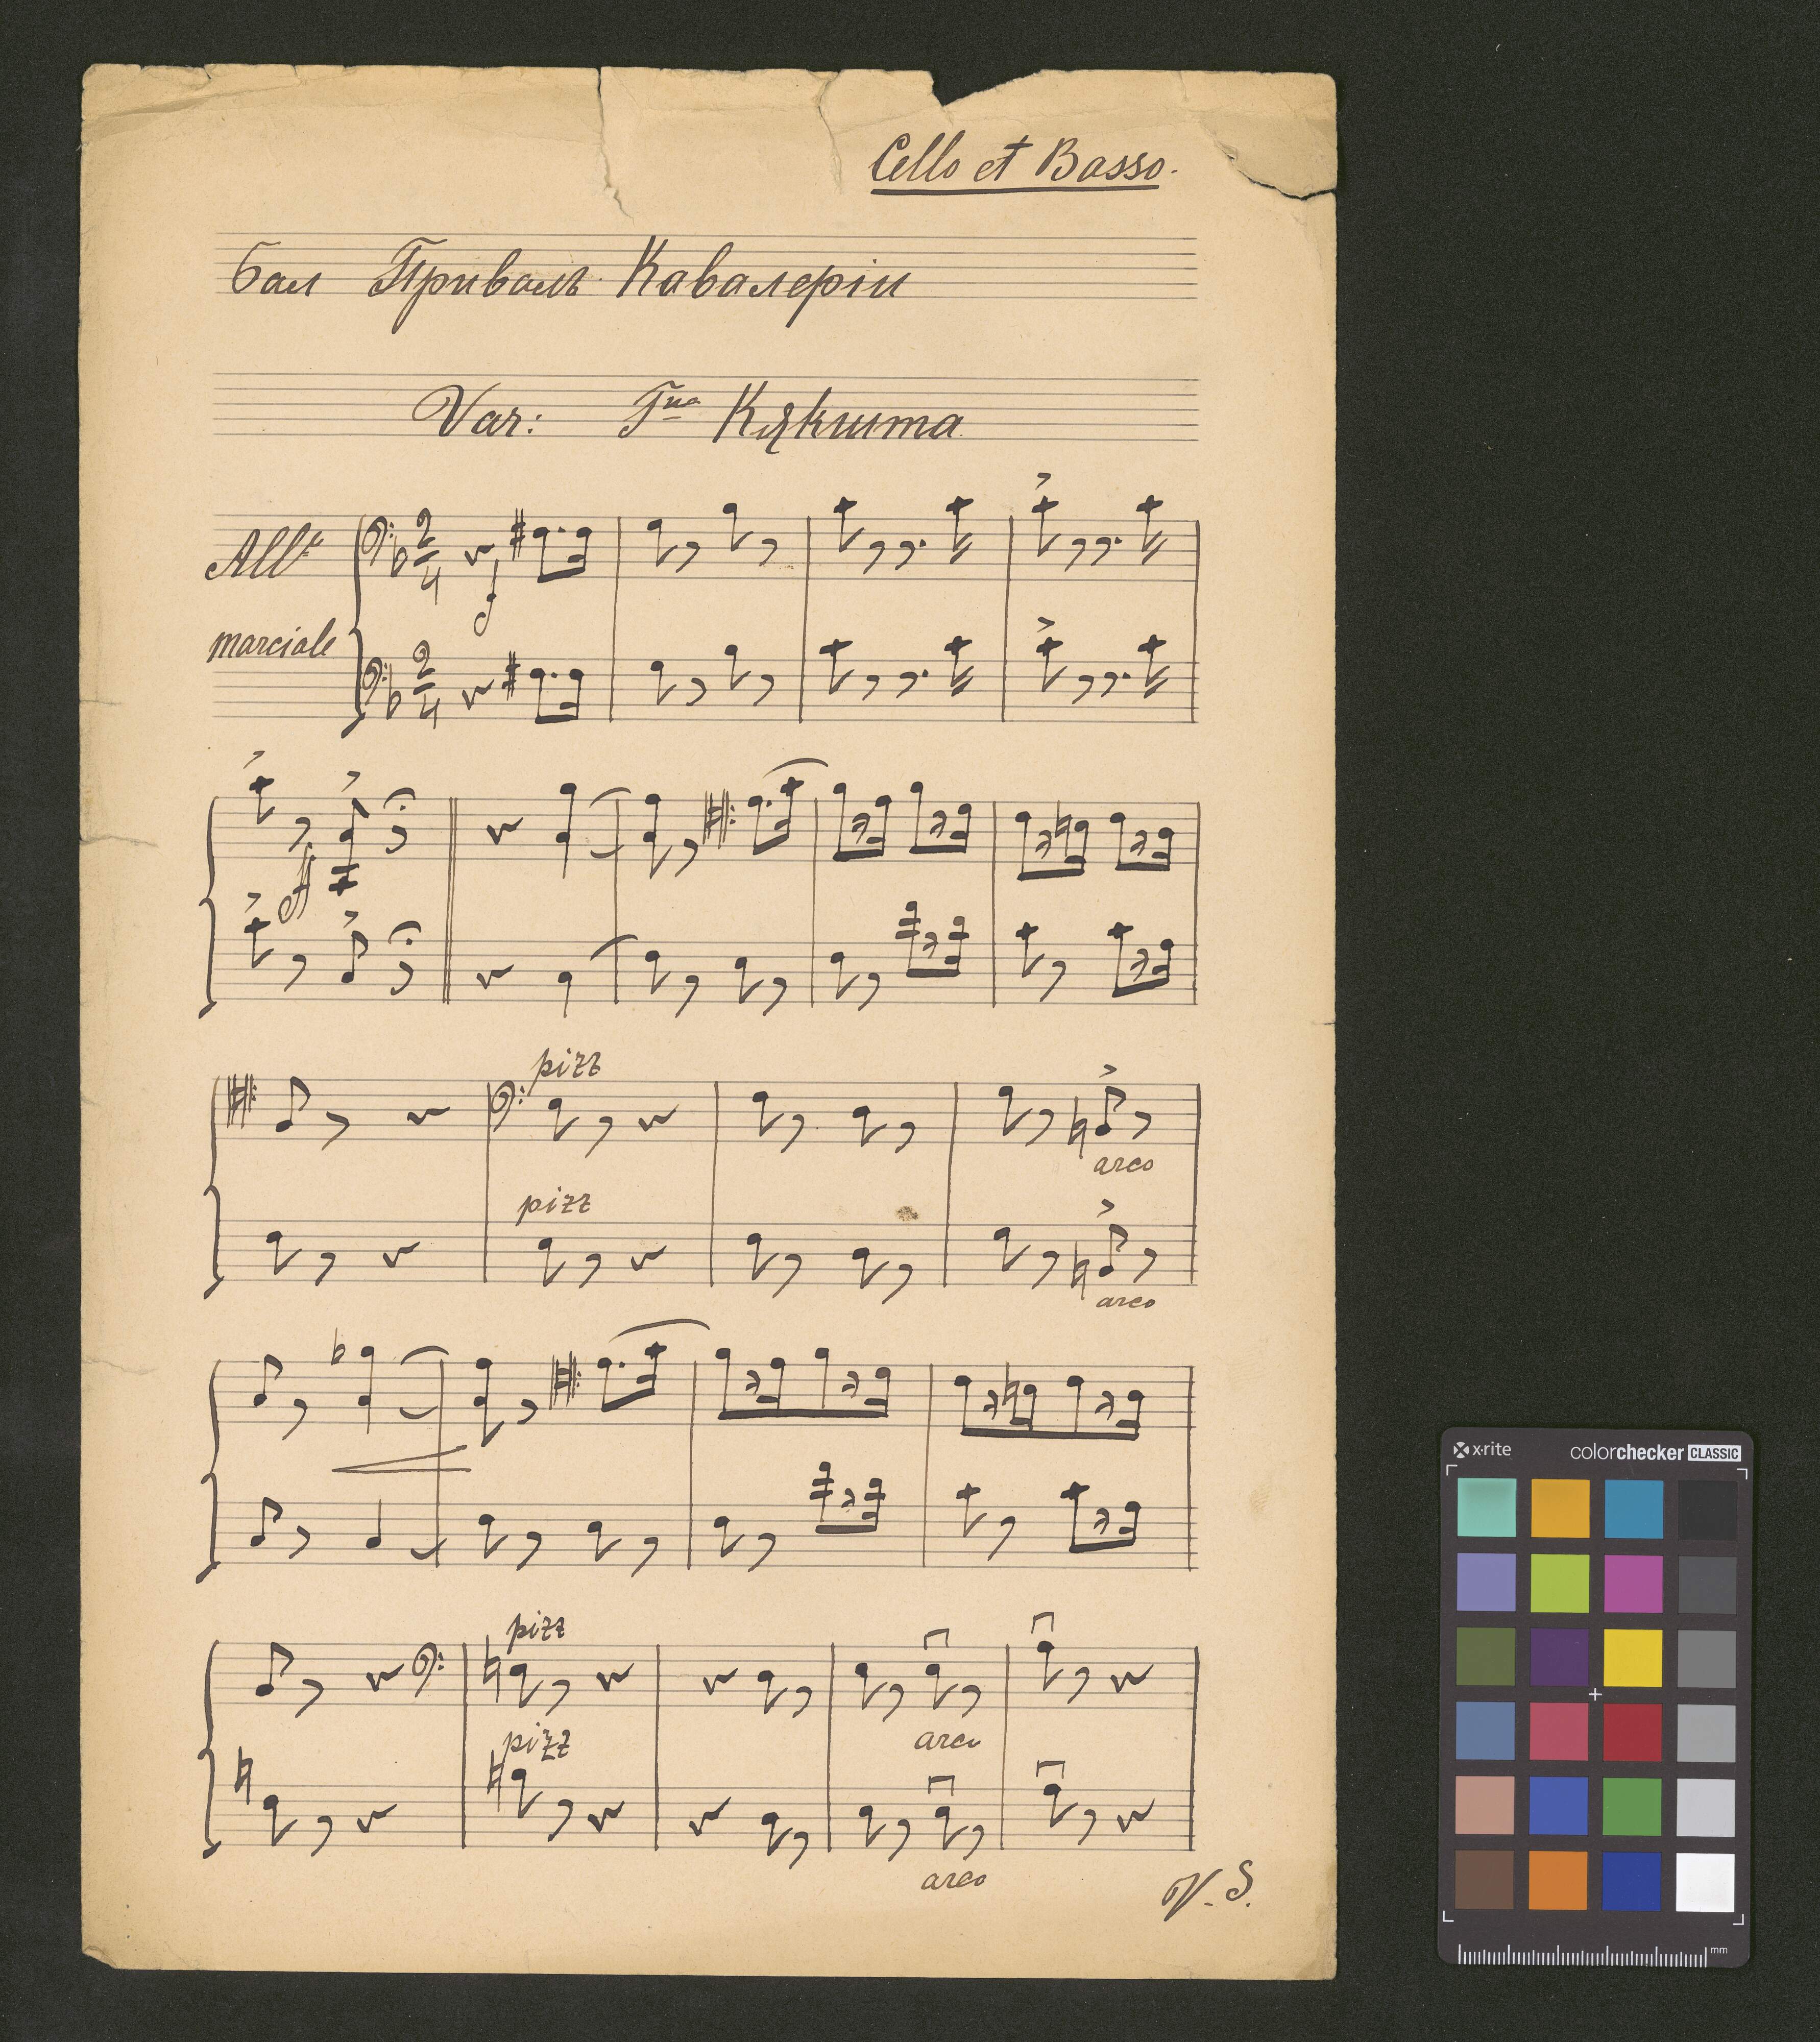 Cello et Basso.
бал Привалъ Кавалеріи
Var: Гна Кякшта
Allo
marciale
2/4
f
2/4
ff
pizz
arco
pizz
arco
pizz
pizz
arco
arco
V. S.
x·rite colorchecker CLASSIC
mm